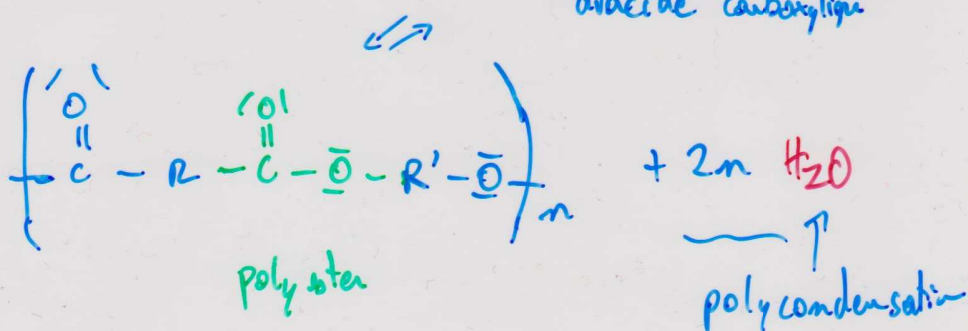 diacide carboxylique
O O
|| ||
( - C - R - C - O - R' - O - )n + 2n H2O
polyester
polycondensation